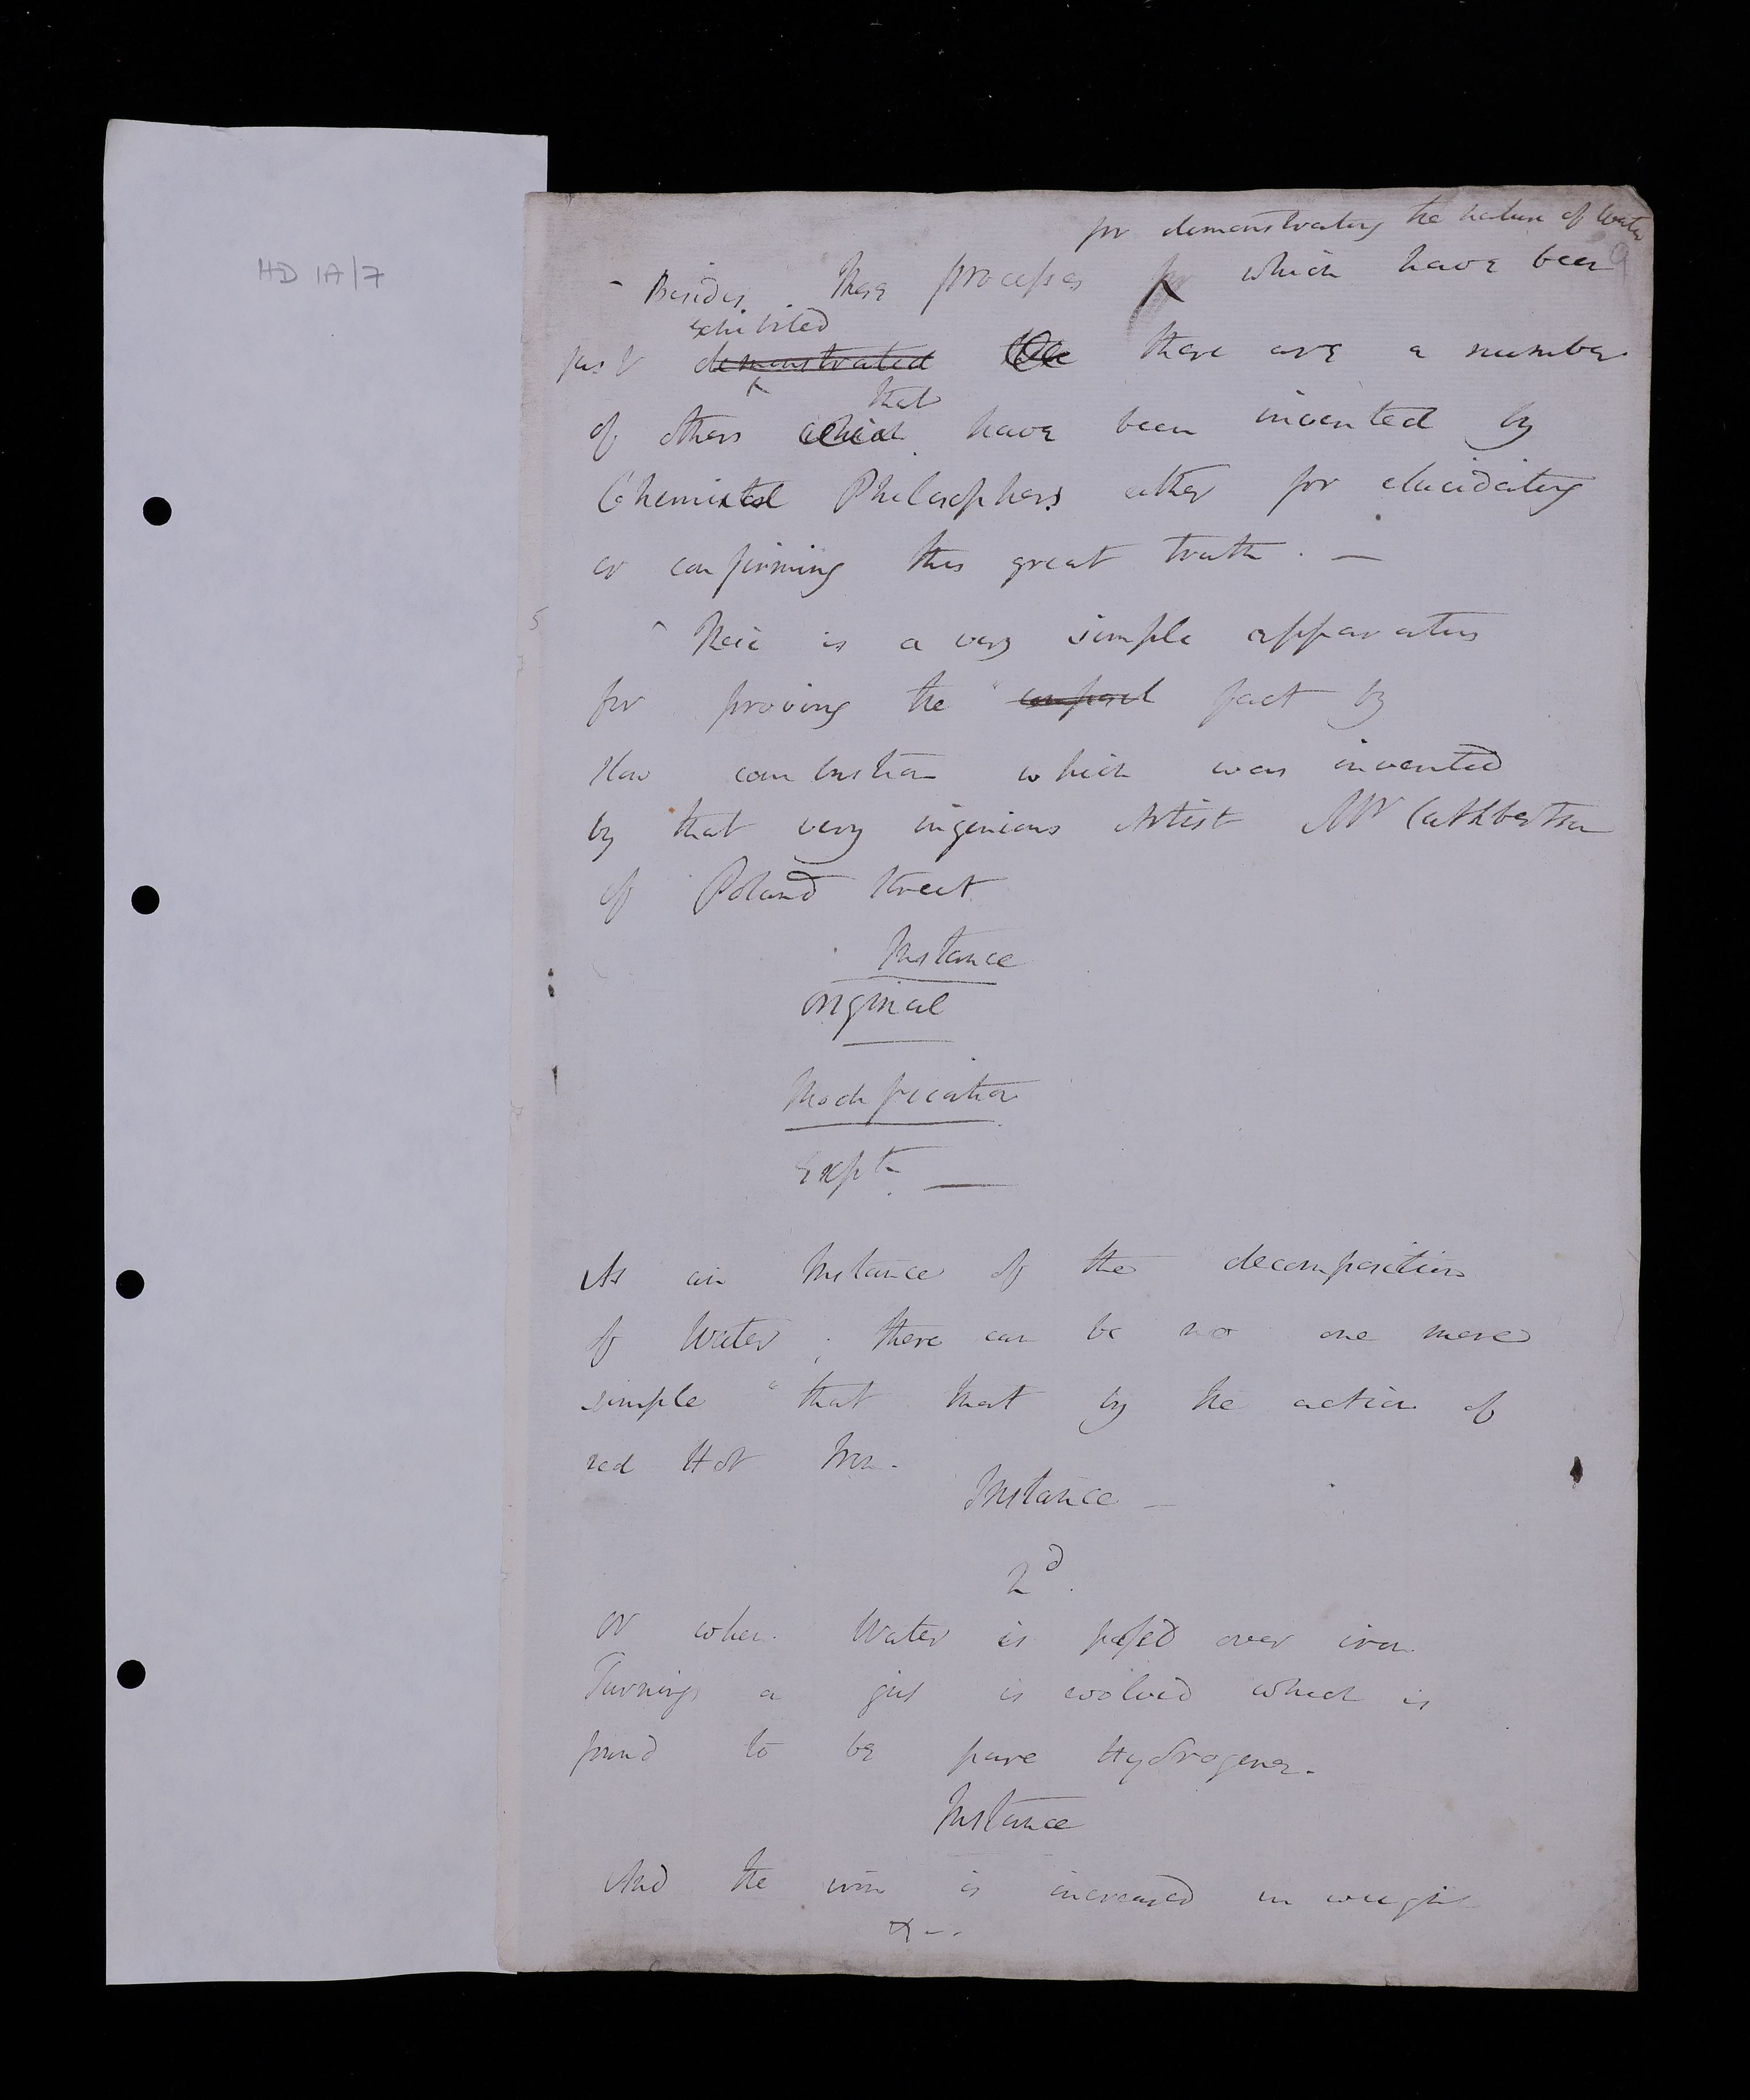 HD 1A/7
for demonstrating the nature of Water
9
- Besides these processes for which have been
exhibited
just demonstrated there are a number
that
of others which have been invented by
Chemical Philosophers either for elucidating
or confirming this great truth. —
Here is a very simple apparatus
for proving the compound fact by
slow combustion which was invented
by that very ingenious Artist Mr Cuthbertson
of Poland Street
Instance
original
Modification
Expt —
As an Instance of the decomposition
of Water; there can be no one more
simple that that by the action of
red Hot Iron.
Instance —
2d.
Or when Water is passed over iron
Turnings a gas is evolved which is
found to be pure Hydrogene.
Instance
And the iron is increased in weight